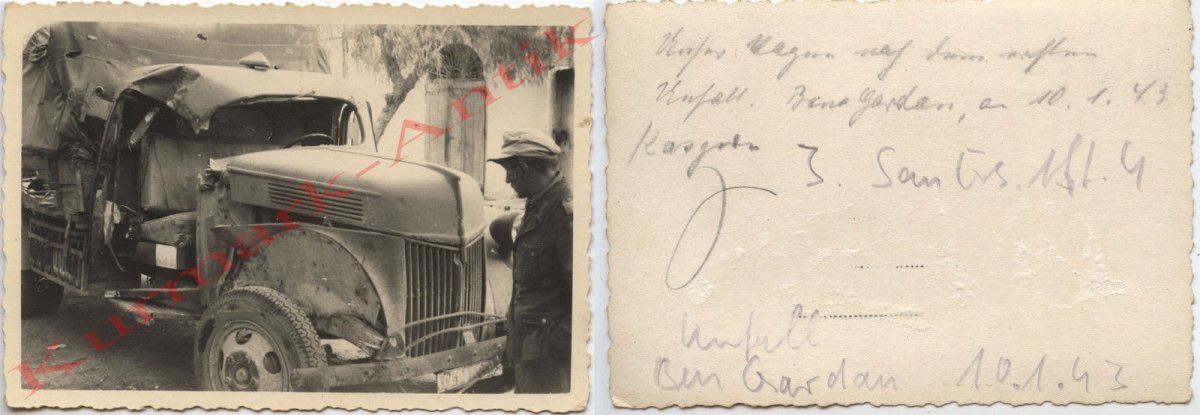 Kurmark-Antik
Unser Wagen nach dem ersten
Unfall. Ben Gardan, am 10.1.43
3. San
Unfall
Ben Gardan 10.1.43